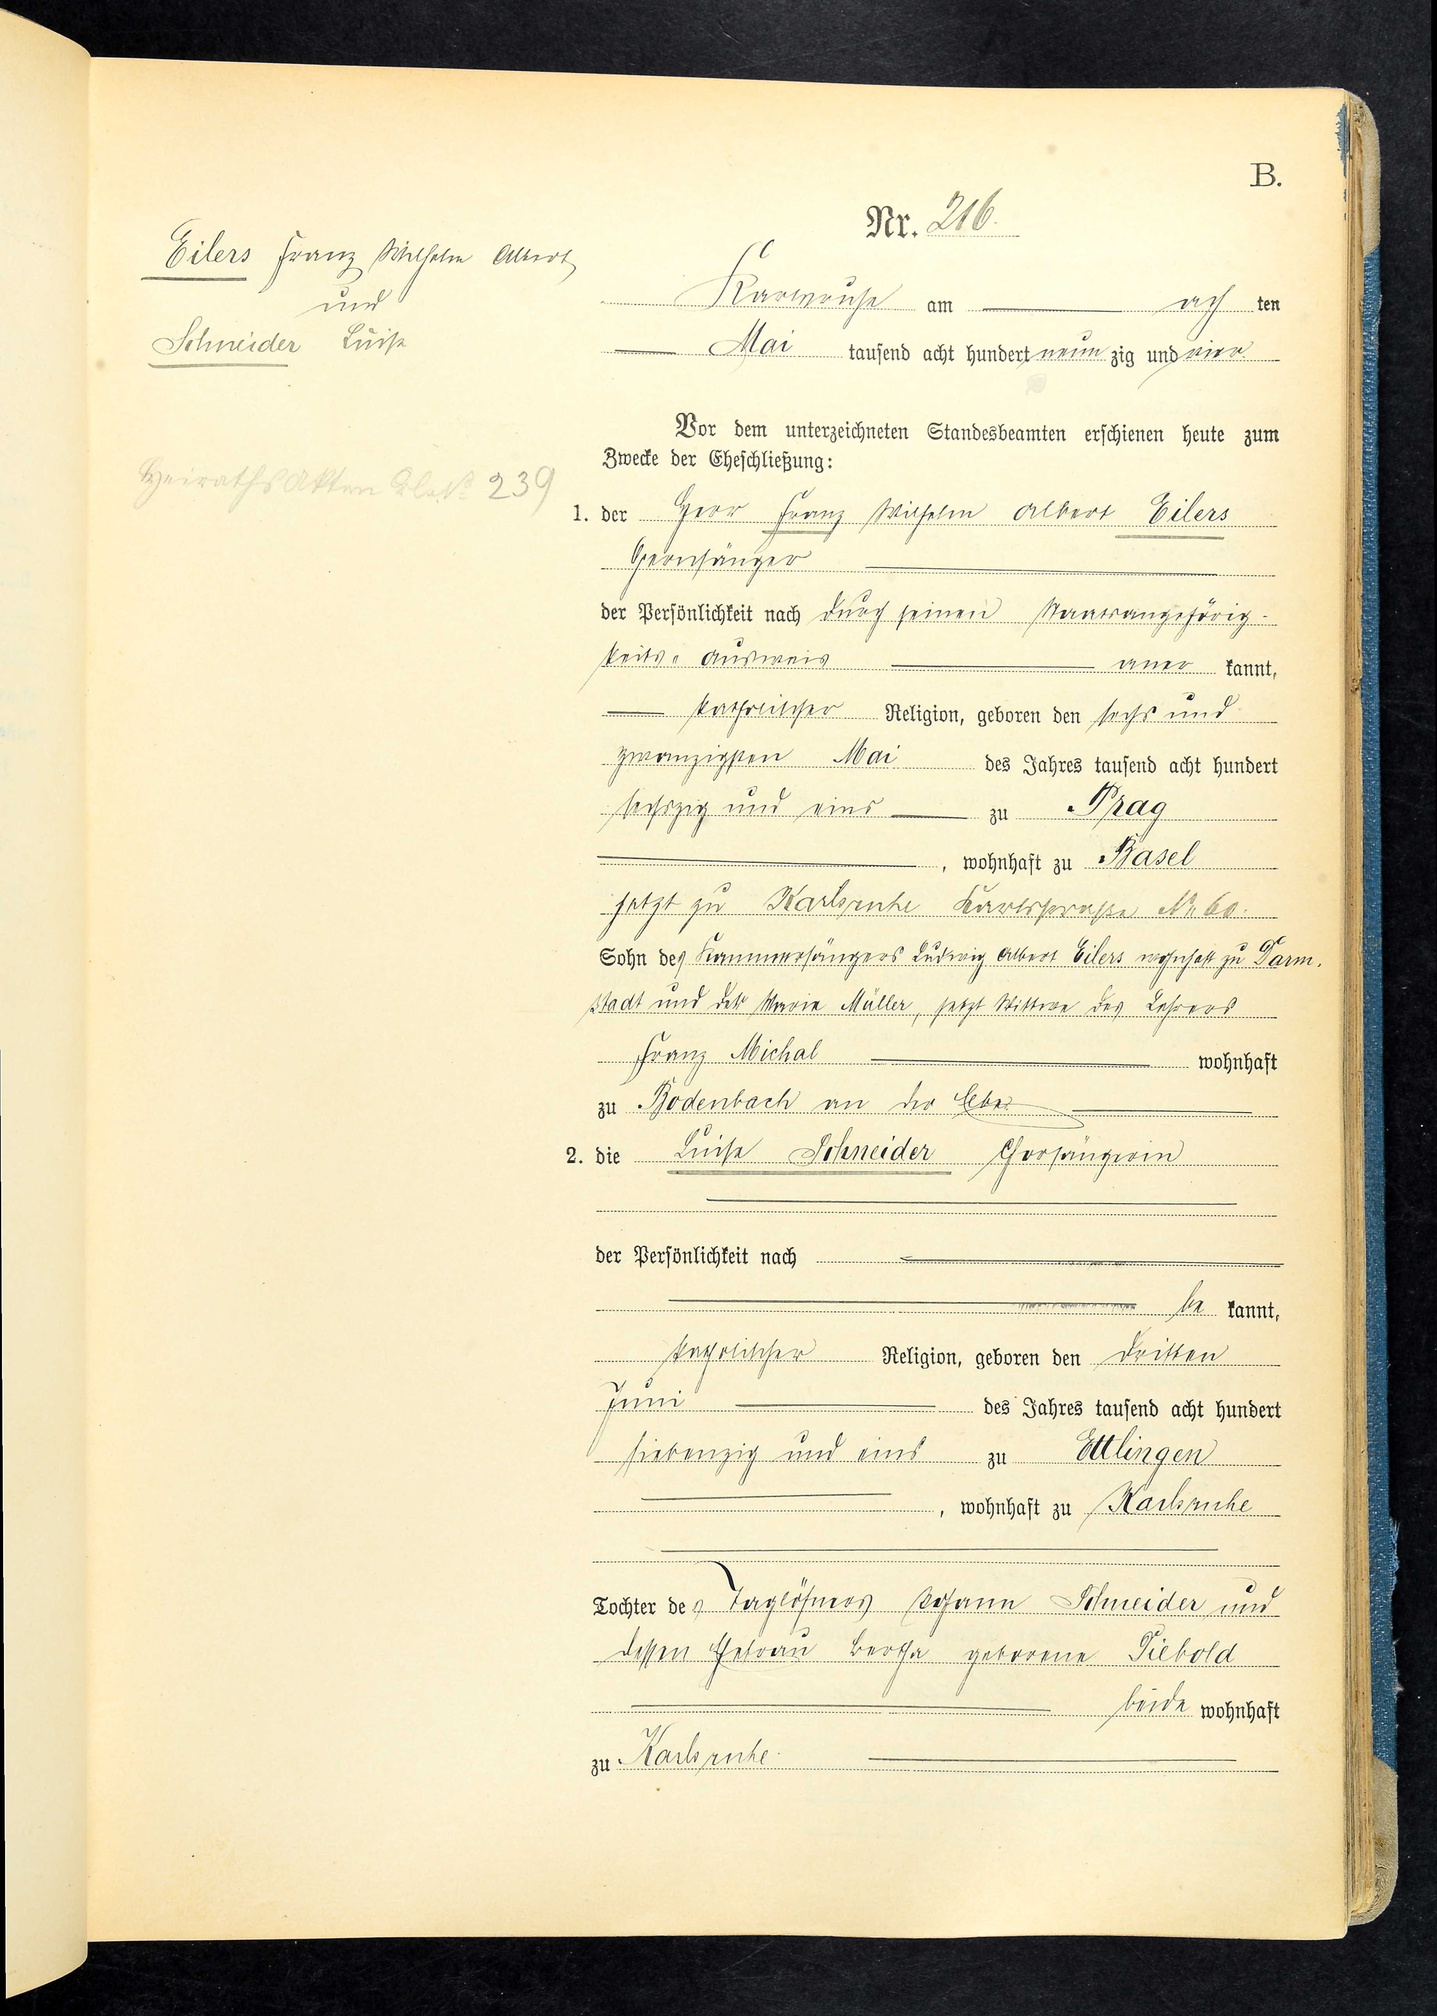 B.
Nr. 216.
Eilers Franz Wilhelm Albert
und
Schneider Luise
Heiraths Akten No 239
Karlsruhe am ach ten
Mai tausend acht hundert neun zig und vier
Vor dem unterzeichneten Standesbeamten erschienen heute zum
Zwecke der Eheschließung:
1. der Herr Franz Wilhelm Albert Eilers
Opernsänger
der Persönlichkeit nach durch seinen Staatsangehörig-
keits-Ausweis aner kannt,
katholischer Religion, geboren den sechs und
zwanzigsten Mai des Jahres tausend acht hundert
sechszig und eins zu Prag
, wohnhaft zu Basel
jetzt zu Karlsruhe Karlstraße No 60.
Sohn des Kammersängers Ludwig Albert Eilers wohnhaft zu Darm-
stadt und der Marie Müller, jetzt Wittwe des Lehrers
Franz Michal wohnhaft
zu Bodenbach an der Elbe
2. die Luise Schneider Chorsängerin
der Persönlichkeit nach
be kannt,
katholischer Religion, geboren den dritten
Juni des Jahres tausend acht hundert
siebenzig und eins zu Ettlingen
, wohnhaft zu Karlsruhe
Tochter des Taglöhners Johann Schneider und
dessen Ehefrau Bertha geborene Diebold
beide wohnhaft
zu Karlsruhe.